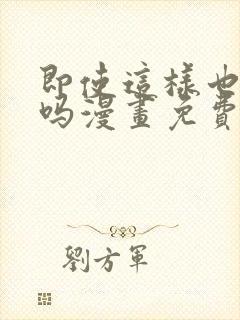 即使這樣也
吗漫畫免費
劉方軍